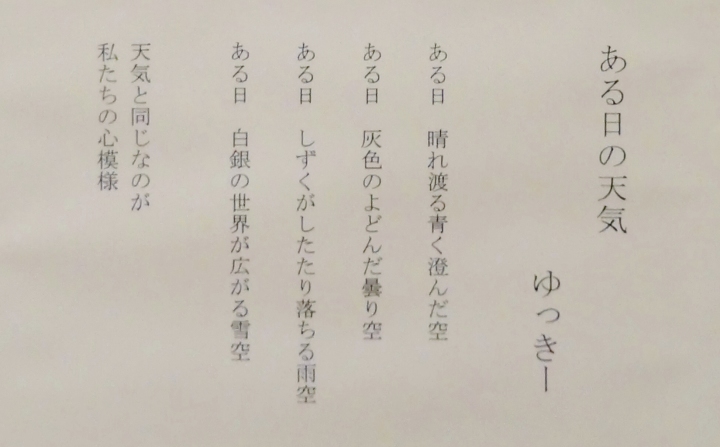 ある日の天気
ゆっきー
ある日　晴れ渡る青く澄んだ空
ある日　灰色のよどんだ曇り空
ある日　しずくがしたたり落ちる雨空
ある日　白銀の世界が広がる雪空
天気と同じなのが
私たちの心模様